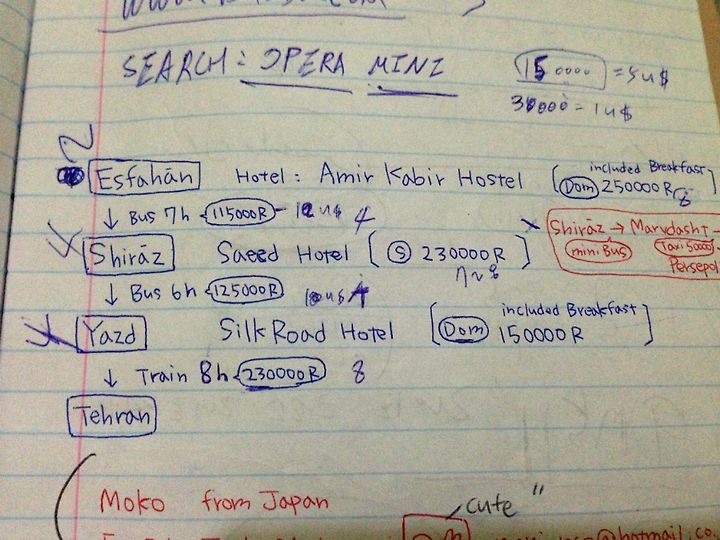 SEARCH: OPERA MINI
150000 = 5U$
30000 = 1U$
2
Esfahān Hotel: Amir Kabir Hostel [included Breakfast Dom 250000R] 8
↓ Bus 7h 115000R 4
Shirāz Saeed Hotel [S 230000R]
Shirāz → Marvdasht
miniBus Taxi 50000
Persepol
↓ Bus 6h 125000R 4
Yazd Silk Road Hotel [included Breakfast Dom 150000R]
↓ Train 8h 230000R 8
Tehran
Moko from Japan
cute "
@hotmail.co